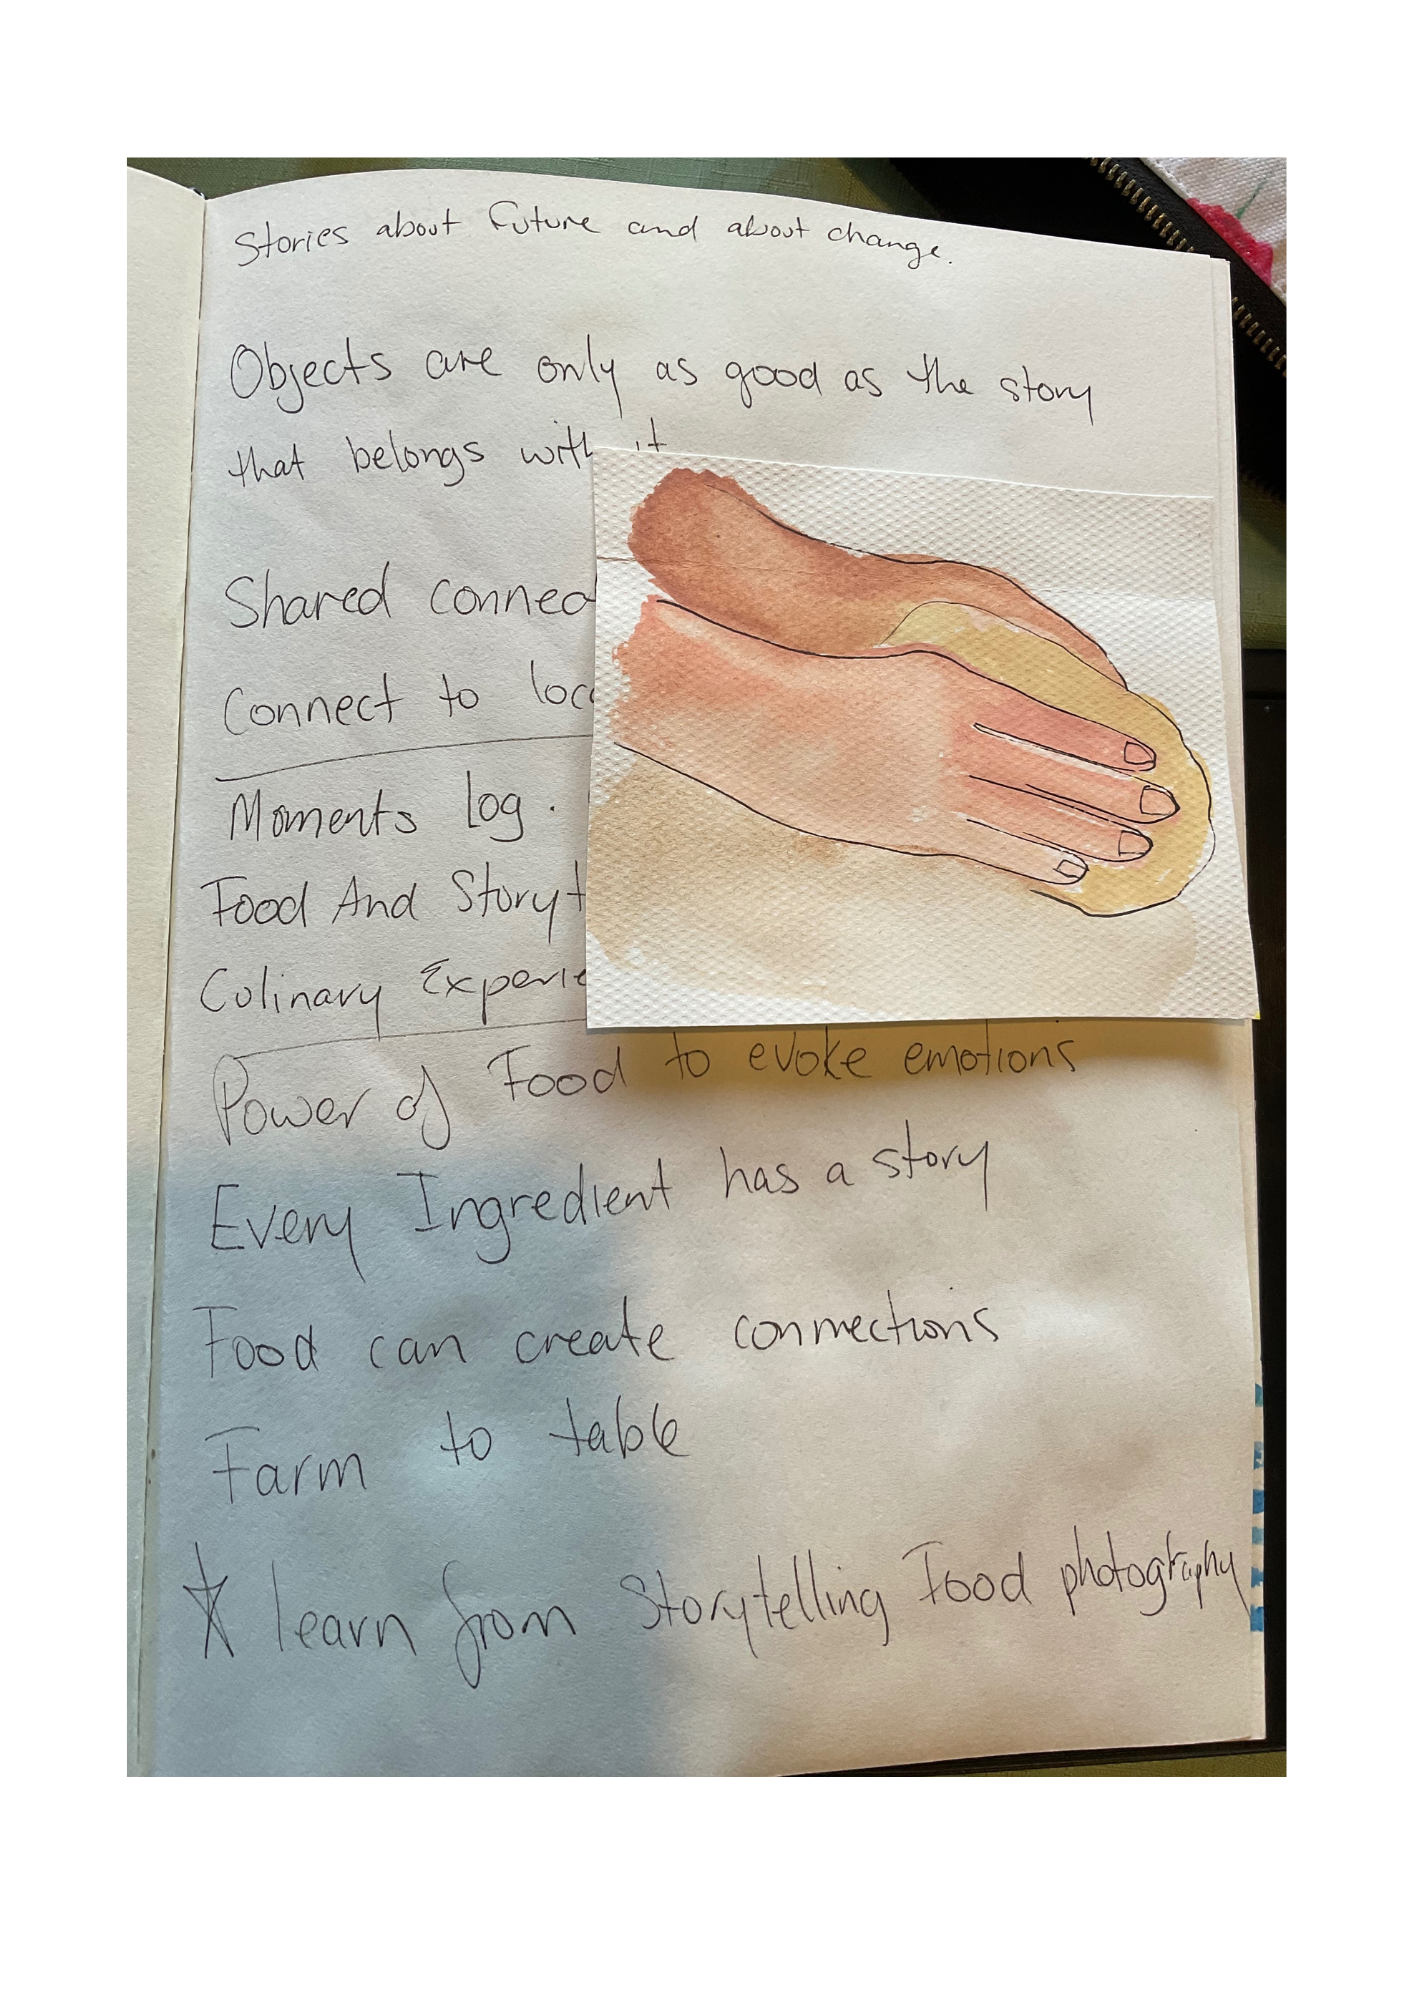 Stories about Future and about change.
Objects are only as good as the story
that belongs with it
Shared connec
Connect to loc
Moments log.
Food And Storyt
Culinary Experie
Power of Food to evoke emotions
Every Ingredient has a story
Food can create connections
Farm to table
☆ learn from Storytelling Food photography